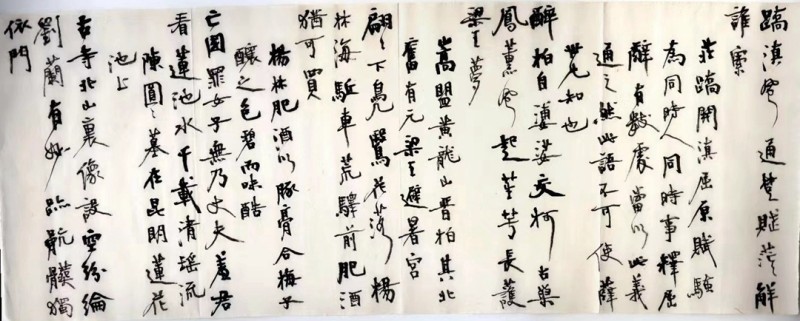 蹻滇兮通楚賦蕩解
誰寮
莊蹻開滇屈原賦騷
為同時人同時事釋屈
辭有數處當以此義
通之然此語不可使薛
覺知也
醉柏自連婆交柯古巢
鳳薰兮起茎芳長護
梁王夢
嵩盟黃龍山晋柏其北
舊有元梁王避暑宮
翩翩下鳧鷖花落楊
林海駈車荒驛前肥酒
猶可買
楊林肥酒以豚膏合梅子
釀之色碧而味酷
亡國罪女子無乃丈夫羞君
看蓮池水千載清瑤流
陳圓圓墓在昆明蓮花
池上
古寺北山裏像設空紛綸
劉蘭有妙跡骯髒獨
依門